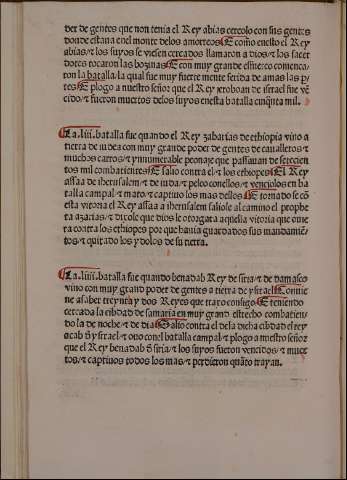 der de gentes que non tenia el Rey abias cercolo con sus gentes
donde estana en el monte delos amorreos ⁊ E como en esto el Rey
abias ⁊ los suyos se viesen cercados llamaron a dios ⁊ los sacer
dotes tocaron las bozinas E con muy grande esfuerço comença
ron la batalla. la qual fue muy fuerte mente ferida de amas las ptes
E plogo a nuestro señor que el Rey jeroboan de israel fue vẽ
cido ⁊ fueron muertos delos suyos en esta batalla cinquẽta mil.
La .liii. batalla fue quando el Rey zabarias de ethiopia vino a
tierra de iudea con muy grande poder de gentes de cavalleros ⁊
muchos carros ⁊ ynnumerable peonaje que passauan de setecien
tos mil combatientes E salio contra el ⁊ los ethiopes El Rey
assaa de iherusalem ⁊ de iuda ⁊ peleo con ellos ⁊ venciolos en ba
talla campal ⁊ mato ⁊ captiuo los mas dellos E tornado se cõ
esta vitoria el Rey assaa a iherusalem saliole al camino el prophe
ta azarias ⁊ dixole que dios le otorgara aquella vitoria que ouie
ra contra los ethiopes por que hauia guardados sus mandamiẽ
tos ⁊ quitado los ydolos de su tierra.
La .liiii. batalla fue quando benadab Rey de siria ⁊ de damasco
vino con muy grand poder de gentes a tierra de ysrael Conuie
ne a saber treynta y dos Reyes que traxo consigo E teniendo
cercada la cibdad de samaria en muy grand estrecho combatien
do la de noche ⁊ de dia Salio contra el de la dicha cibdad el rey
acab ð ysrael ⁊ ouo con el batalla campal ⁊ plogo a nuestro señor
que el Rey benadab ð siria ⁊ los suyos fueron vencidos ⁊ muer
tos ⁊ captiuos todos los mas ⁊ perdieron quãto trayan.